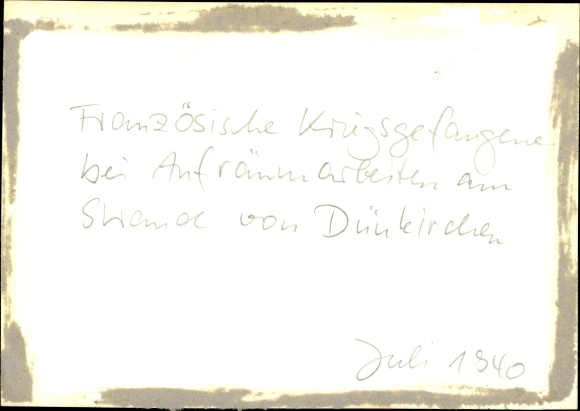 Französische Kriegsgefangene
bei Aufräumarbeiten am
Strande von Dünkirchen
Juli 1940